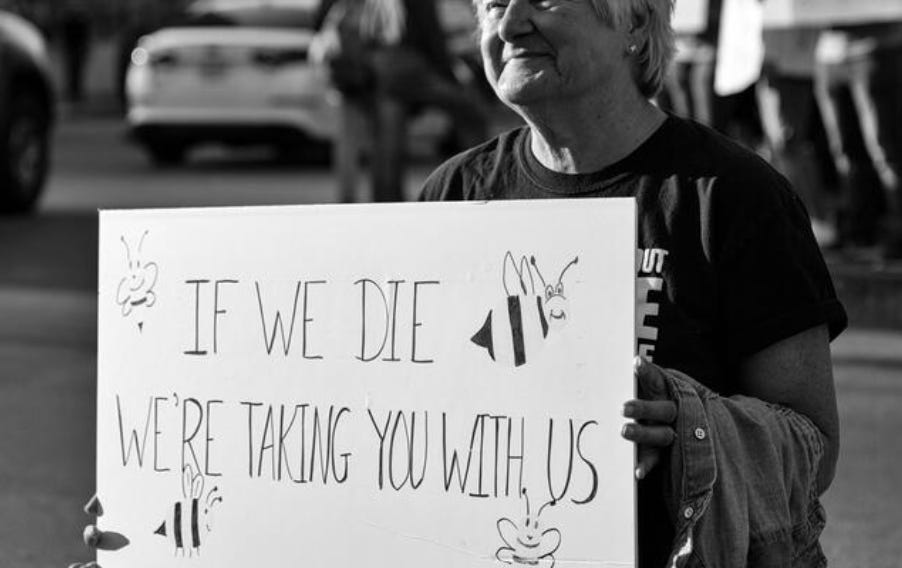 IF WE DIE
WE'RE TAKING YOU WITH US
OUT